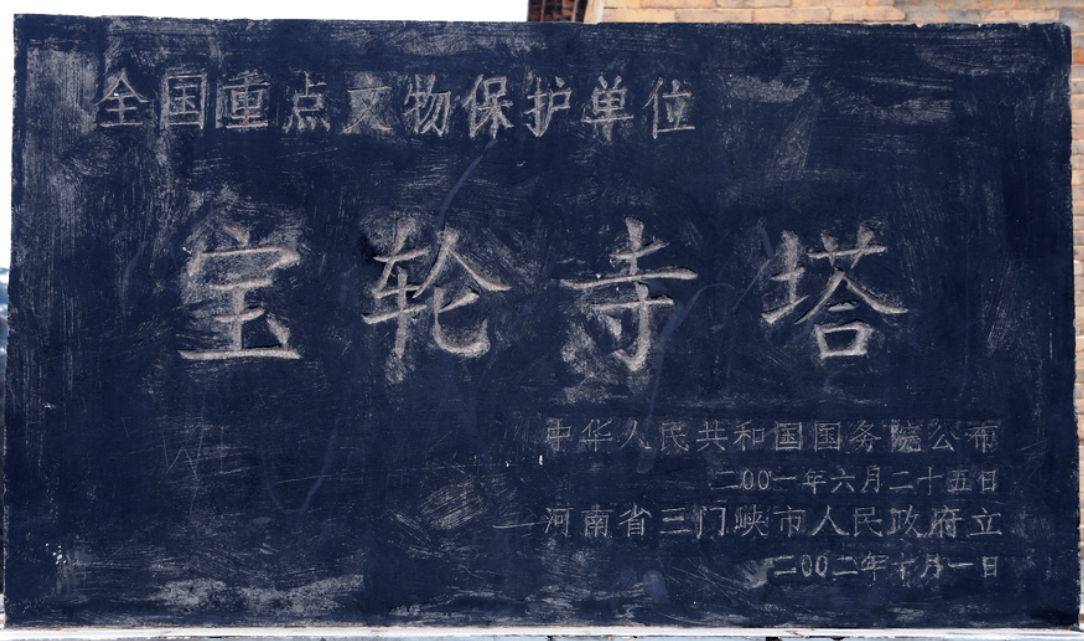 全国重点文物保护单位
宝轮寺塔
中华人民共和国国务院公布
二00一年六月二十五日
河南省三门峡市人民政府立
二00二年十月一日